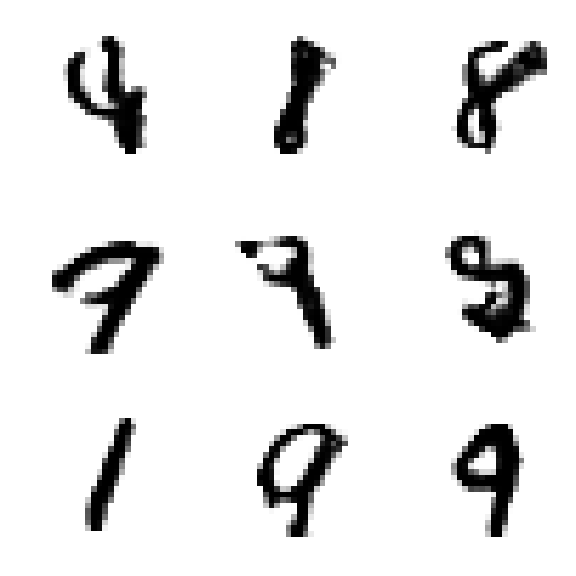 4 8 8
7 9 8
1 9 9